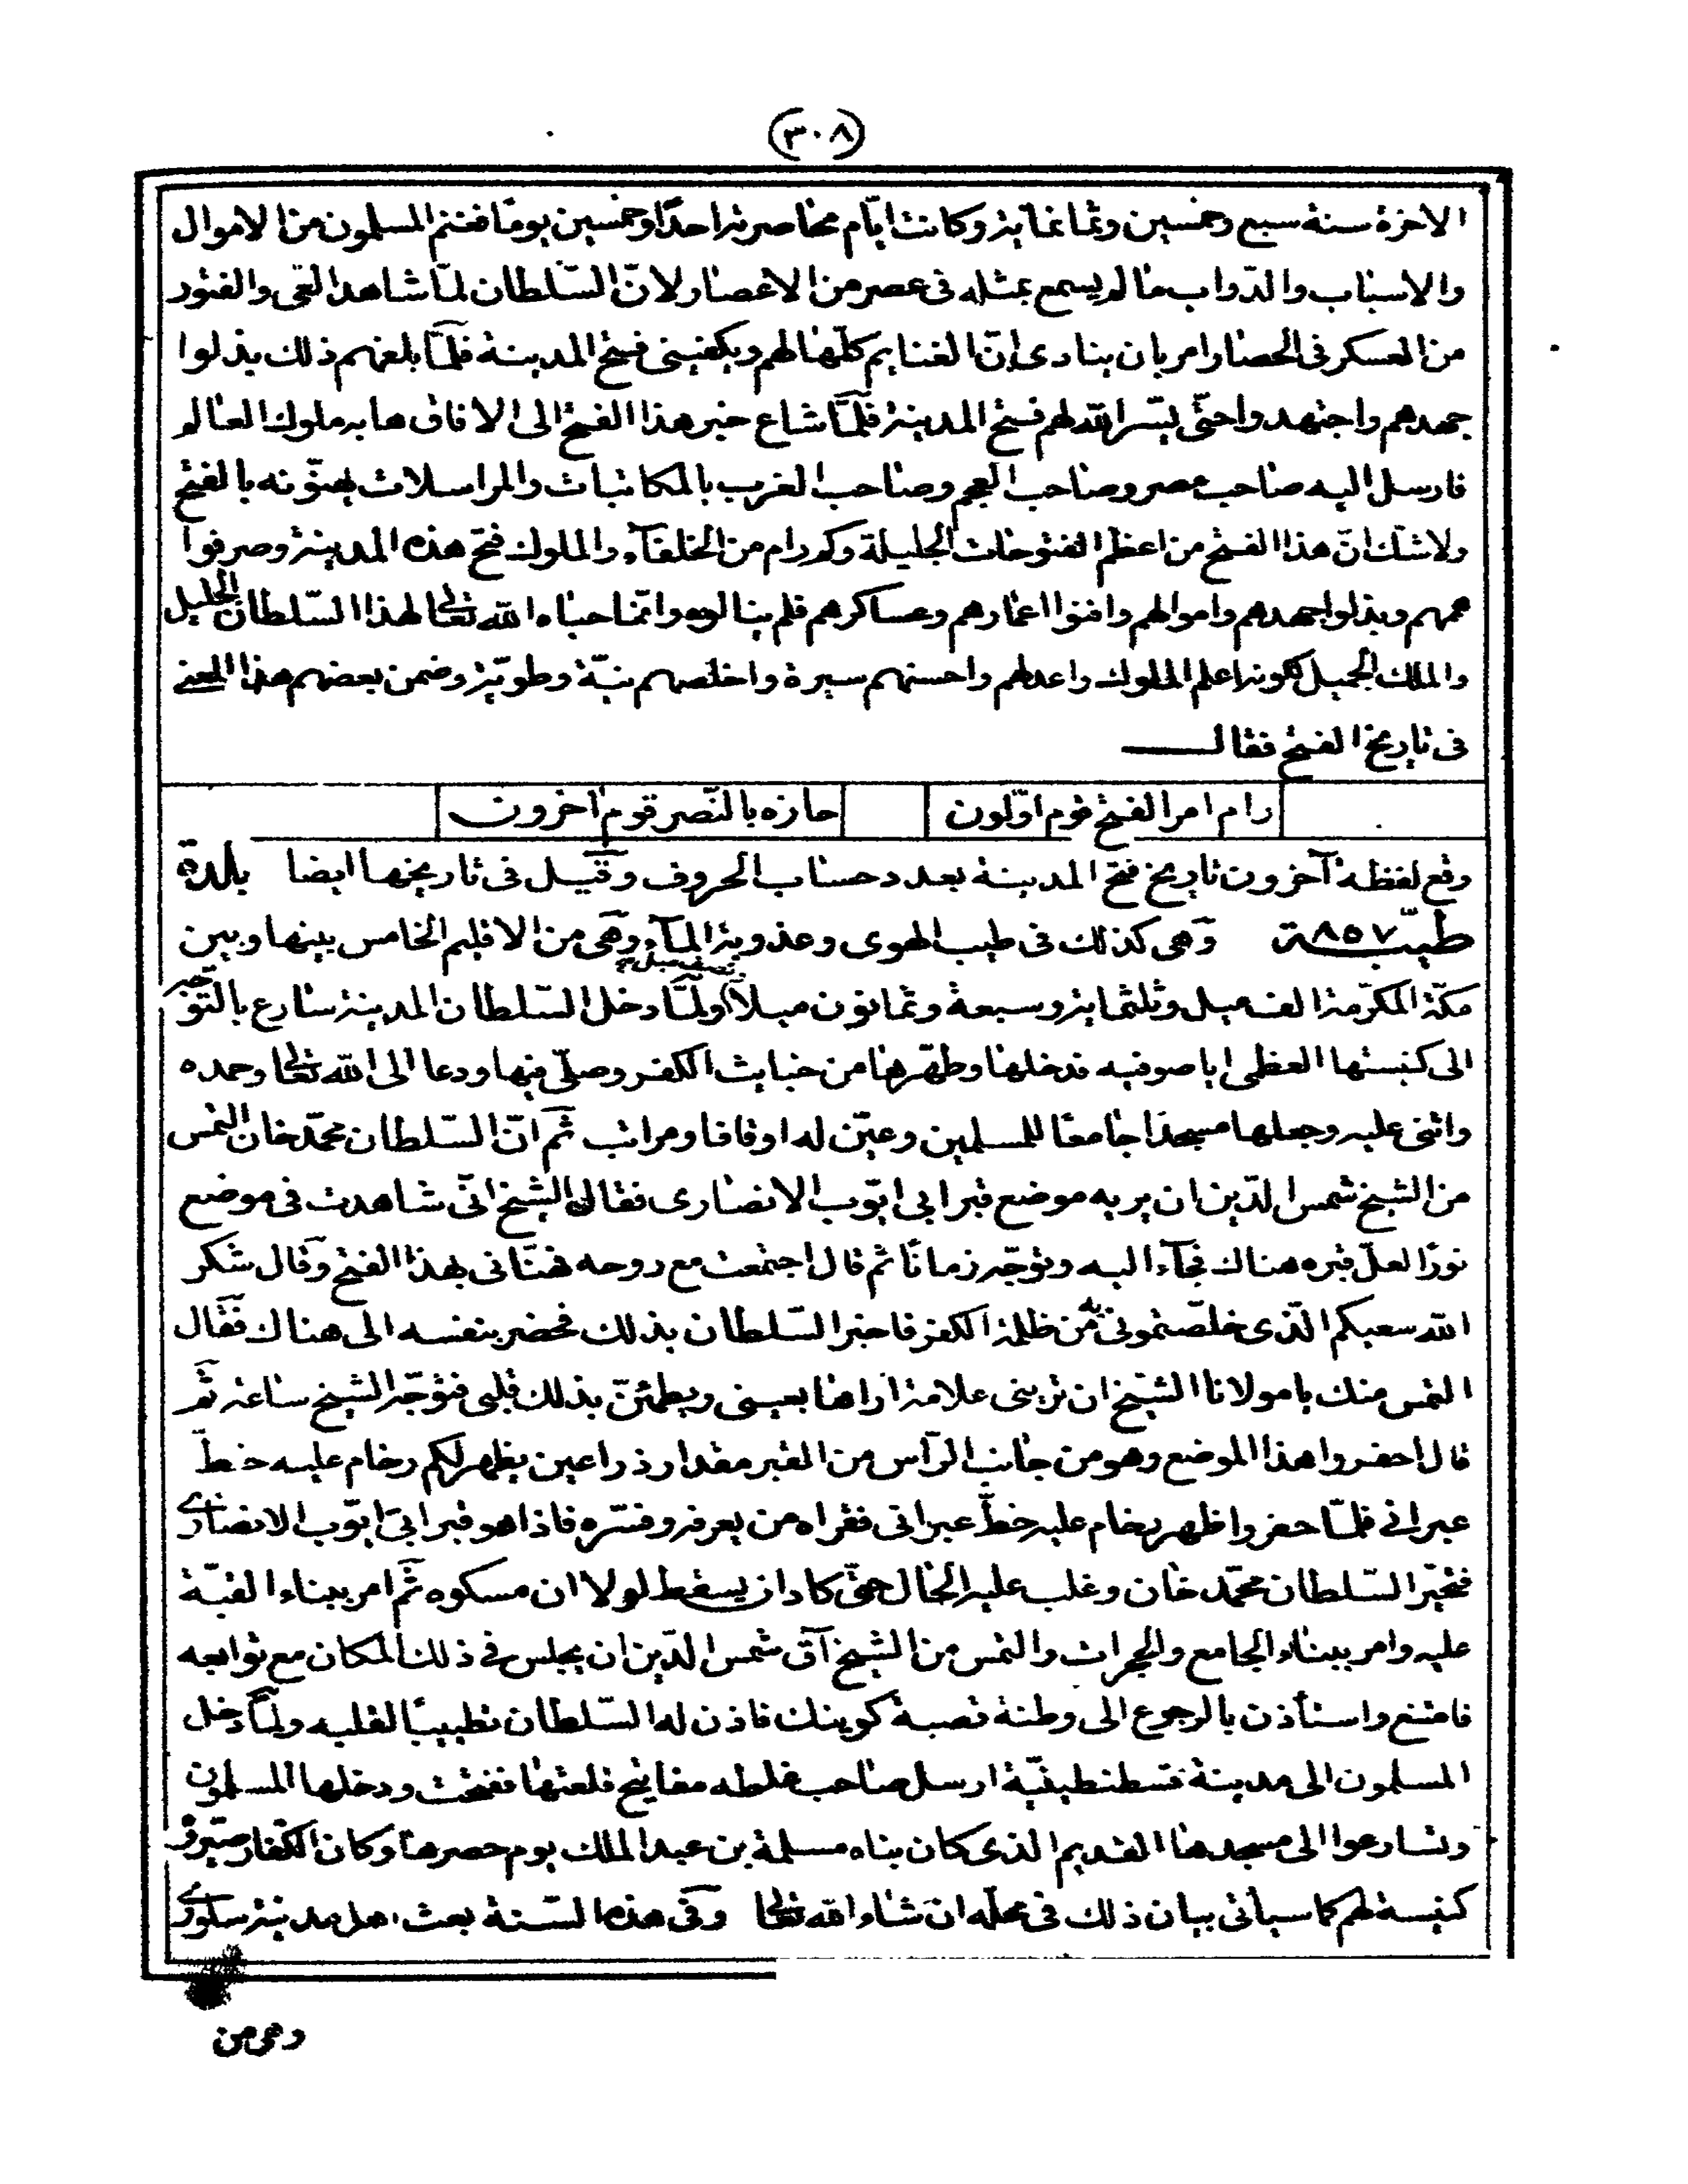 (٣٠٨)
الاخرة سنة سبع وخمسين وثمانمائة وكانت ايّام محاصرته احدًا وخمسين يومًا فغنم المسلمون من الاموال
والاسباب والدّواب ما لم يسمع بمثله فى عصر من الاعصار لانّ السّلطان لمّا شاهد العى والفتور
من العسكر فى الحصار امر بان ينادى انّ الغنايم كلّها لهم ويكفينى فتح المدينة فلمّا بلغهم ذلك بذلوا
جهدهم واجتهدوا حتّى يسّر الله لهم فتح المدينة فلمّا شاع خبر هذا الفتح الى الافاق هابه ملوك العالم
فارسل اليه صاحب مصر وصاحب العجم وصاحب الغرب بالمكاتبات والمراسلات يهنّونه بالفتح
ولاشك انّ هذا الفتح من اعظم الفتوحات الجليلة وكم رام من الخلفآء والملوك فتح هذه المدينة وصرفوا
هممهم وبذلوا جهدهم واموالهم وافنوا اعمارهم وعساكرهم فلم ينالوه وانّما حباه الله تعالى لهذا السّلطان الجليل
والملك الجميل لكونه اعلم الملوك واعدلهم واحسنهم سيرة واخلصهم نيّة وطويّة وضمن بعضهم هذا المعنى
فى تاريخ الفتح فقال
رام امر الفتح قوم اوّلون حازه بالنّصر قوم آخرون
وقع لفظة آخرون تاريخ فتح المدينة بعدد حساب الحروف وقيل فى تاريخها ايضا بلدة
طيّبة ٨٥٧ وهى كذلك فى طيب الهوى وعذوبة المآء وهى من الاقليم الخامس بينها وبين
مكّة المكرّمة الف ميل وثلثمائة وسبعة وثمانون ميلاً ونصف ميل ولمّا دخل السّلطان المدينة سارع بالتّوجّه
الى كنيستها العظمى اياصوفيه فدخلها وطهّرها من خبايث الكفر وصلّى فيها ودعا الى الله تعالى وحمده
واثنى عليه وجعلها مسجدا جامعًا للمسلمين وعيّن له اوقافا ومراتب ثم انّ السّلطان محمّد خان التمس
من الشيخ شمس الدّين ان يريه موضع قبر ابى ايّوب الانصارى فقال الشيخ انّى شاهدت فى موضع
نورًا لعلّ قبره هناك فجآء اليه وتوجّه زمانًا ثم قال اجتمعت مع روحه فهنّانى بهذا الفتح وقال شكر
الله سعيكم الّذى خلّصتمونى به من ظلمة الكفر فاخبر السّلطان بذلك فحضر بنفسه الى هناك فقال
التمس منك يا مولانا الشيخ ان ترينى علامة اراها بعينى ويطمئنّ بذلك قلبى فتوجّه الشيخ ساعة ثم
قال احفروا هذا الموضع وهو من جانب الرّاس من القبر مقدار ذراعين يظهر لكم رخام عليه خطّ
عبرانى فلمّا حفروا ظهر رخام عليه خطّ عبرانى فقراه من يعرفه وفسّره فاذا هو قبر ابى ايّوب الانصارى
فتحيّر السّلطان محمّد خان وغلب عليه الحال حتّى كاد ان يسقط لولا ان مسكوه ثم امر ببناء القبّة
عليه وامر ببناء الجامع والحجرات والتمس من الشيخ آق شمس الدّين ان يجلس فى ذلك المكان مع توابعه
فامتنع واستأذن بالرجوع الى وطنة قصبة كوينك فاذن له السّلطان تطييبًا لقلبه ولمّا دخل
المسلمون الى مدينة قسطنطينيّة ارسل صاحب غلطه مفاتيح قلعتها ففتحت ودخلها المسلمون
وتسارعوا الى مسجدها القديم الذى كان بناه مسلمة بن عبد الملك يوم حصرها وكان الكفّار صيّروه
كنيسة لهم كما سيأتى بيان ذلك فى محلّه ان شاء الله تعالى وفى هذه السّنة بعث اهل مدينة سكورى
وهى من